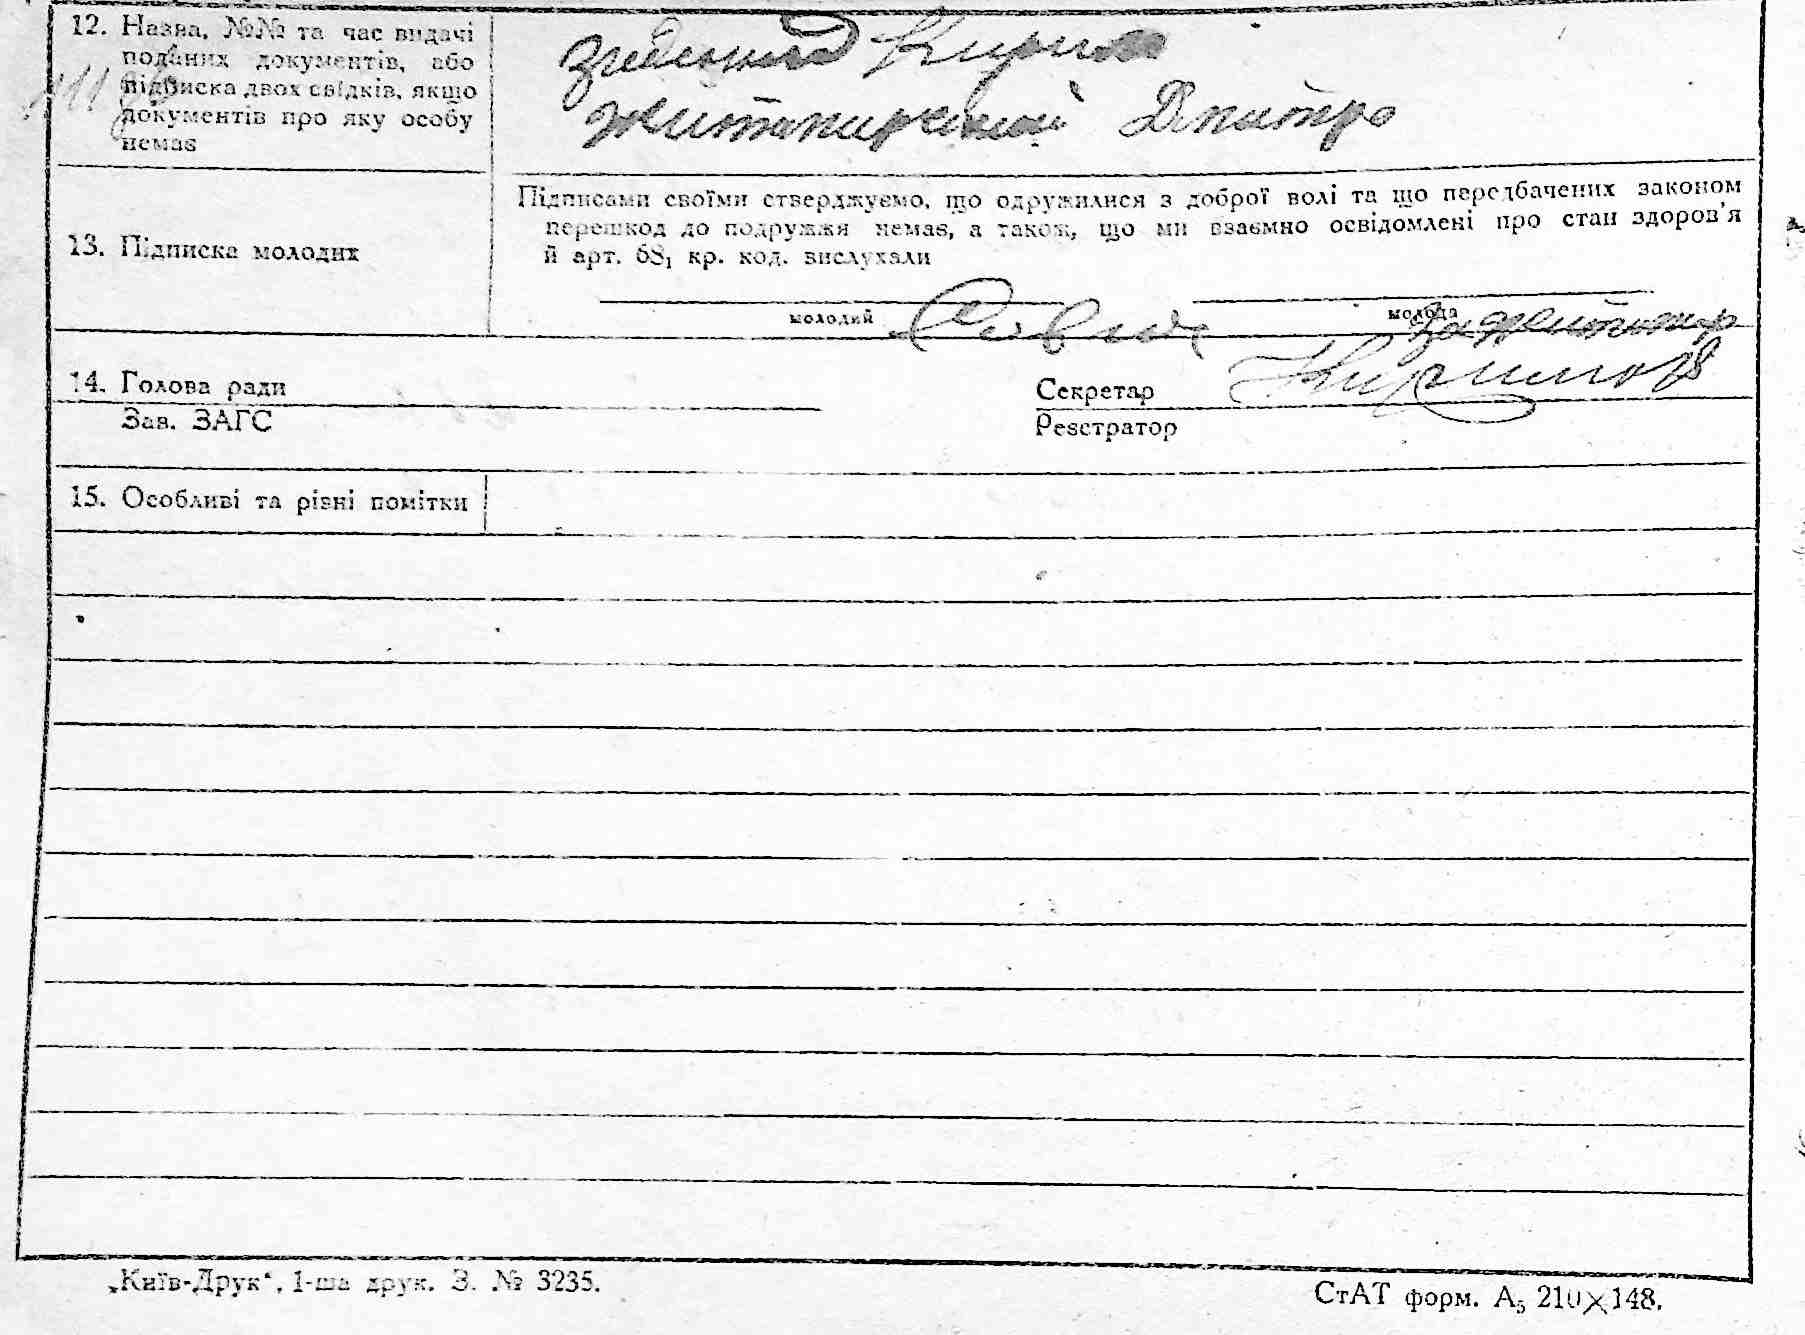 12. Назва, №№ та час видачі
поданих документів, або
підписка двох свідків, якщо
документів про яку особу
немає
Кирило
Житомирський Дмитро
13. Підписка молодих
Підписами своїми стверджуємо, що одружилися з доброї волі та що передбачених законом
перешкод до подружжя немає, а також, що ми взаємно освідомлені про стан здоров'я
й арт. 68₁ кр. код. вислухали
молодий
молода
14. Голова ради
Зав. ЗАГС
Секретар
Реєстратор
15. Особливі та різні помітки
„Київ-Друк“, 1-ша друк. З. № 3235.
СтАТ форм. А₅ 210×148.